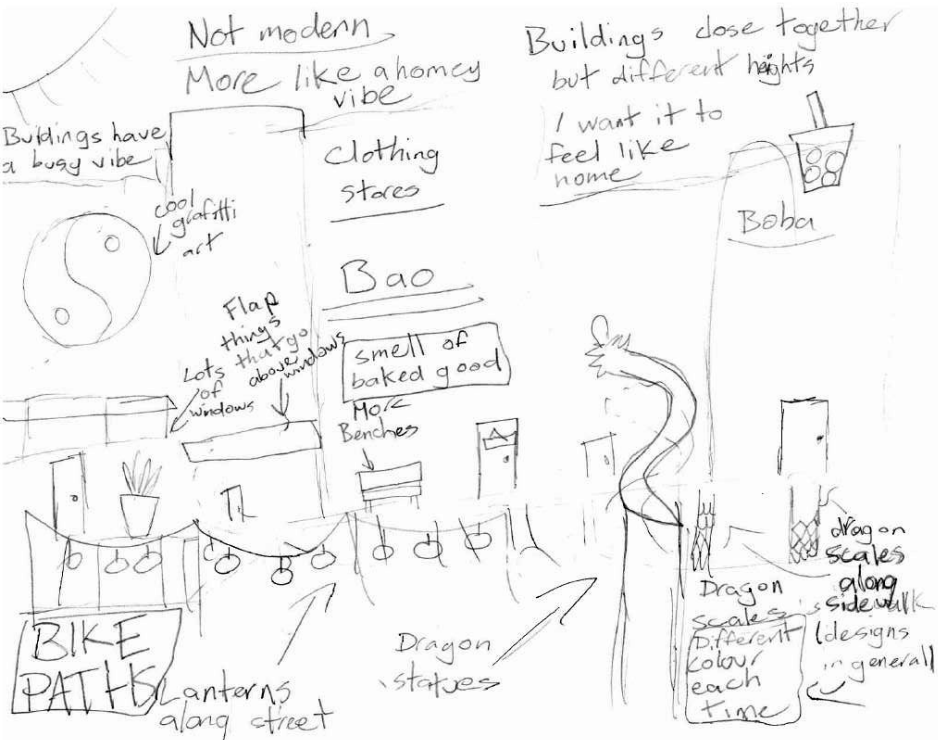 Not modern
More like a homey
vibe
Buildings close together
but different heights
I want it to
feel like
home
Buildings have
a busy vibe
Clothing
stores
cool
grafitti
art
Boba
Bao
Flap
things
that go
above
windows
Lots
of
windows
smell of
baked good
More
Benches
dragon
scales
along
sidewalk
(designs
in general)
Dragon
scales
Different
colour
each
time
Dragon
statues
BIKE
PATHS
Lanterns
along street